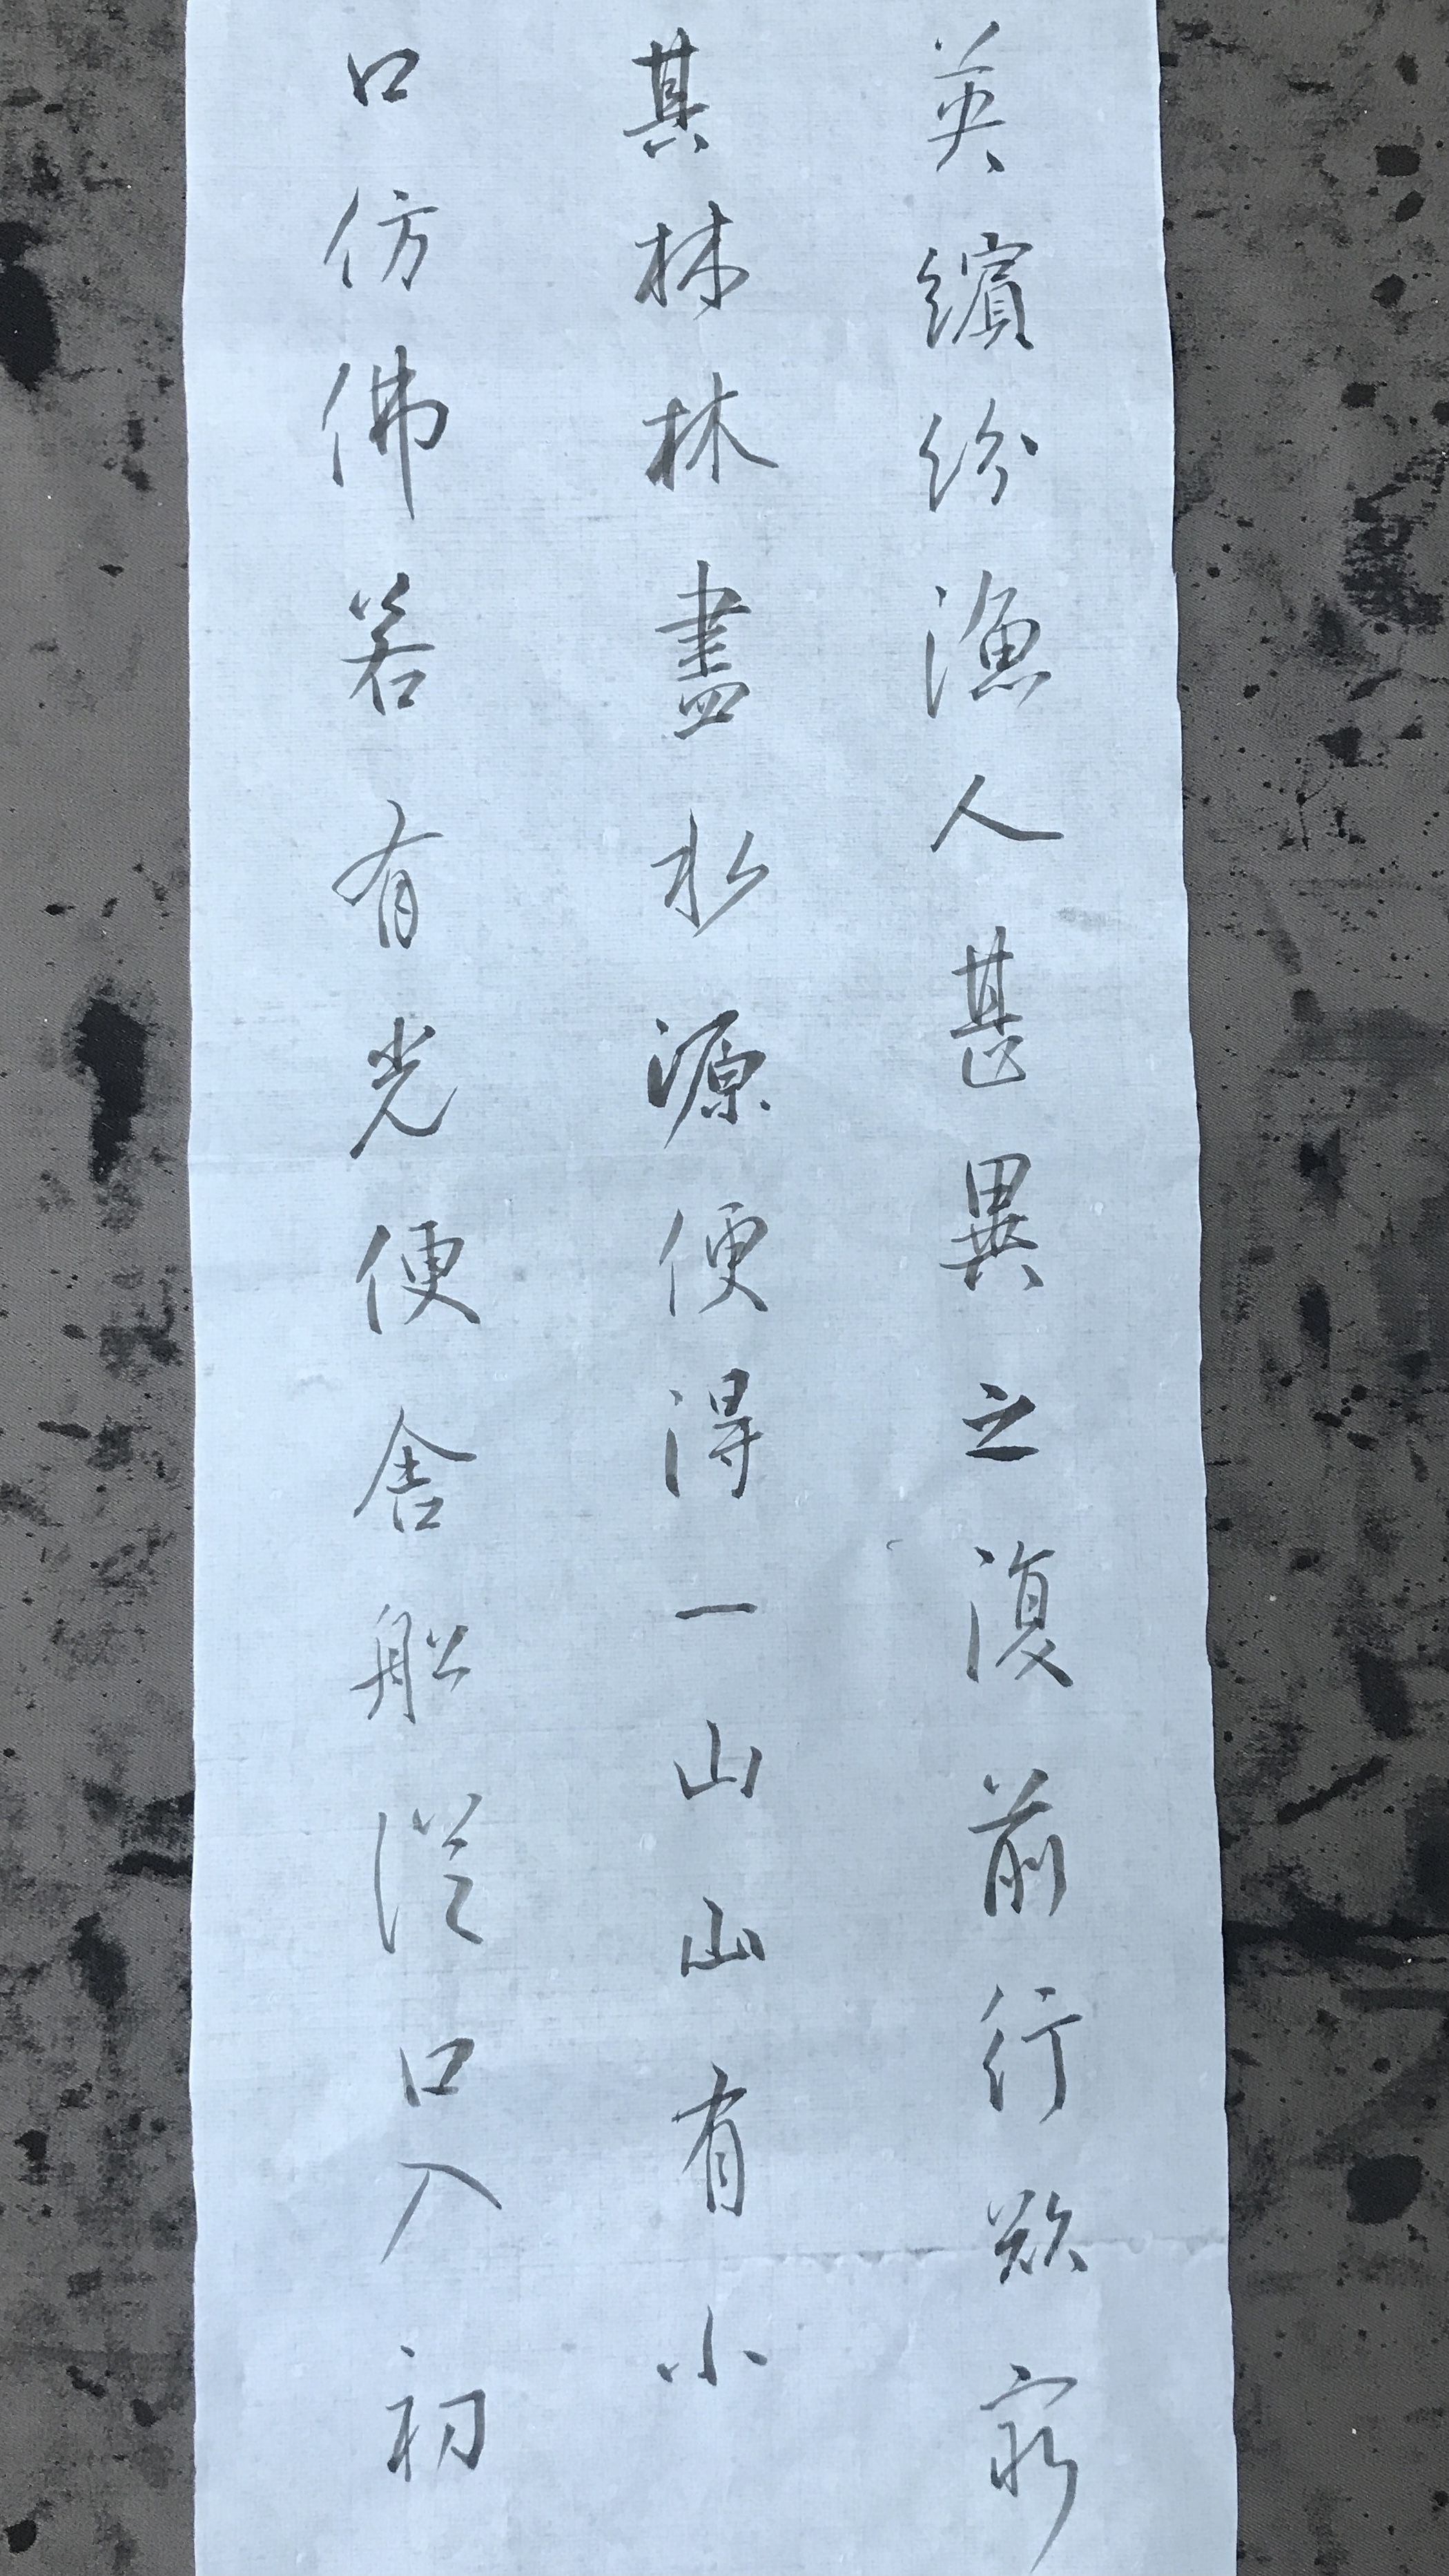 英繽紛漁人甚異之復前行欲窮
其林林盡水源便得一山山有小
口仿佛若有光便舍船從口入初